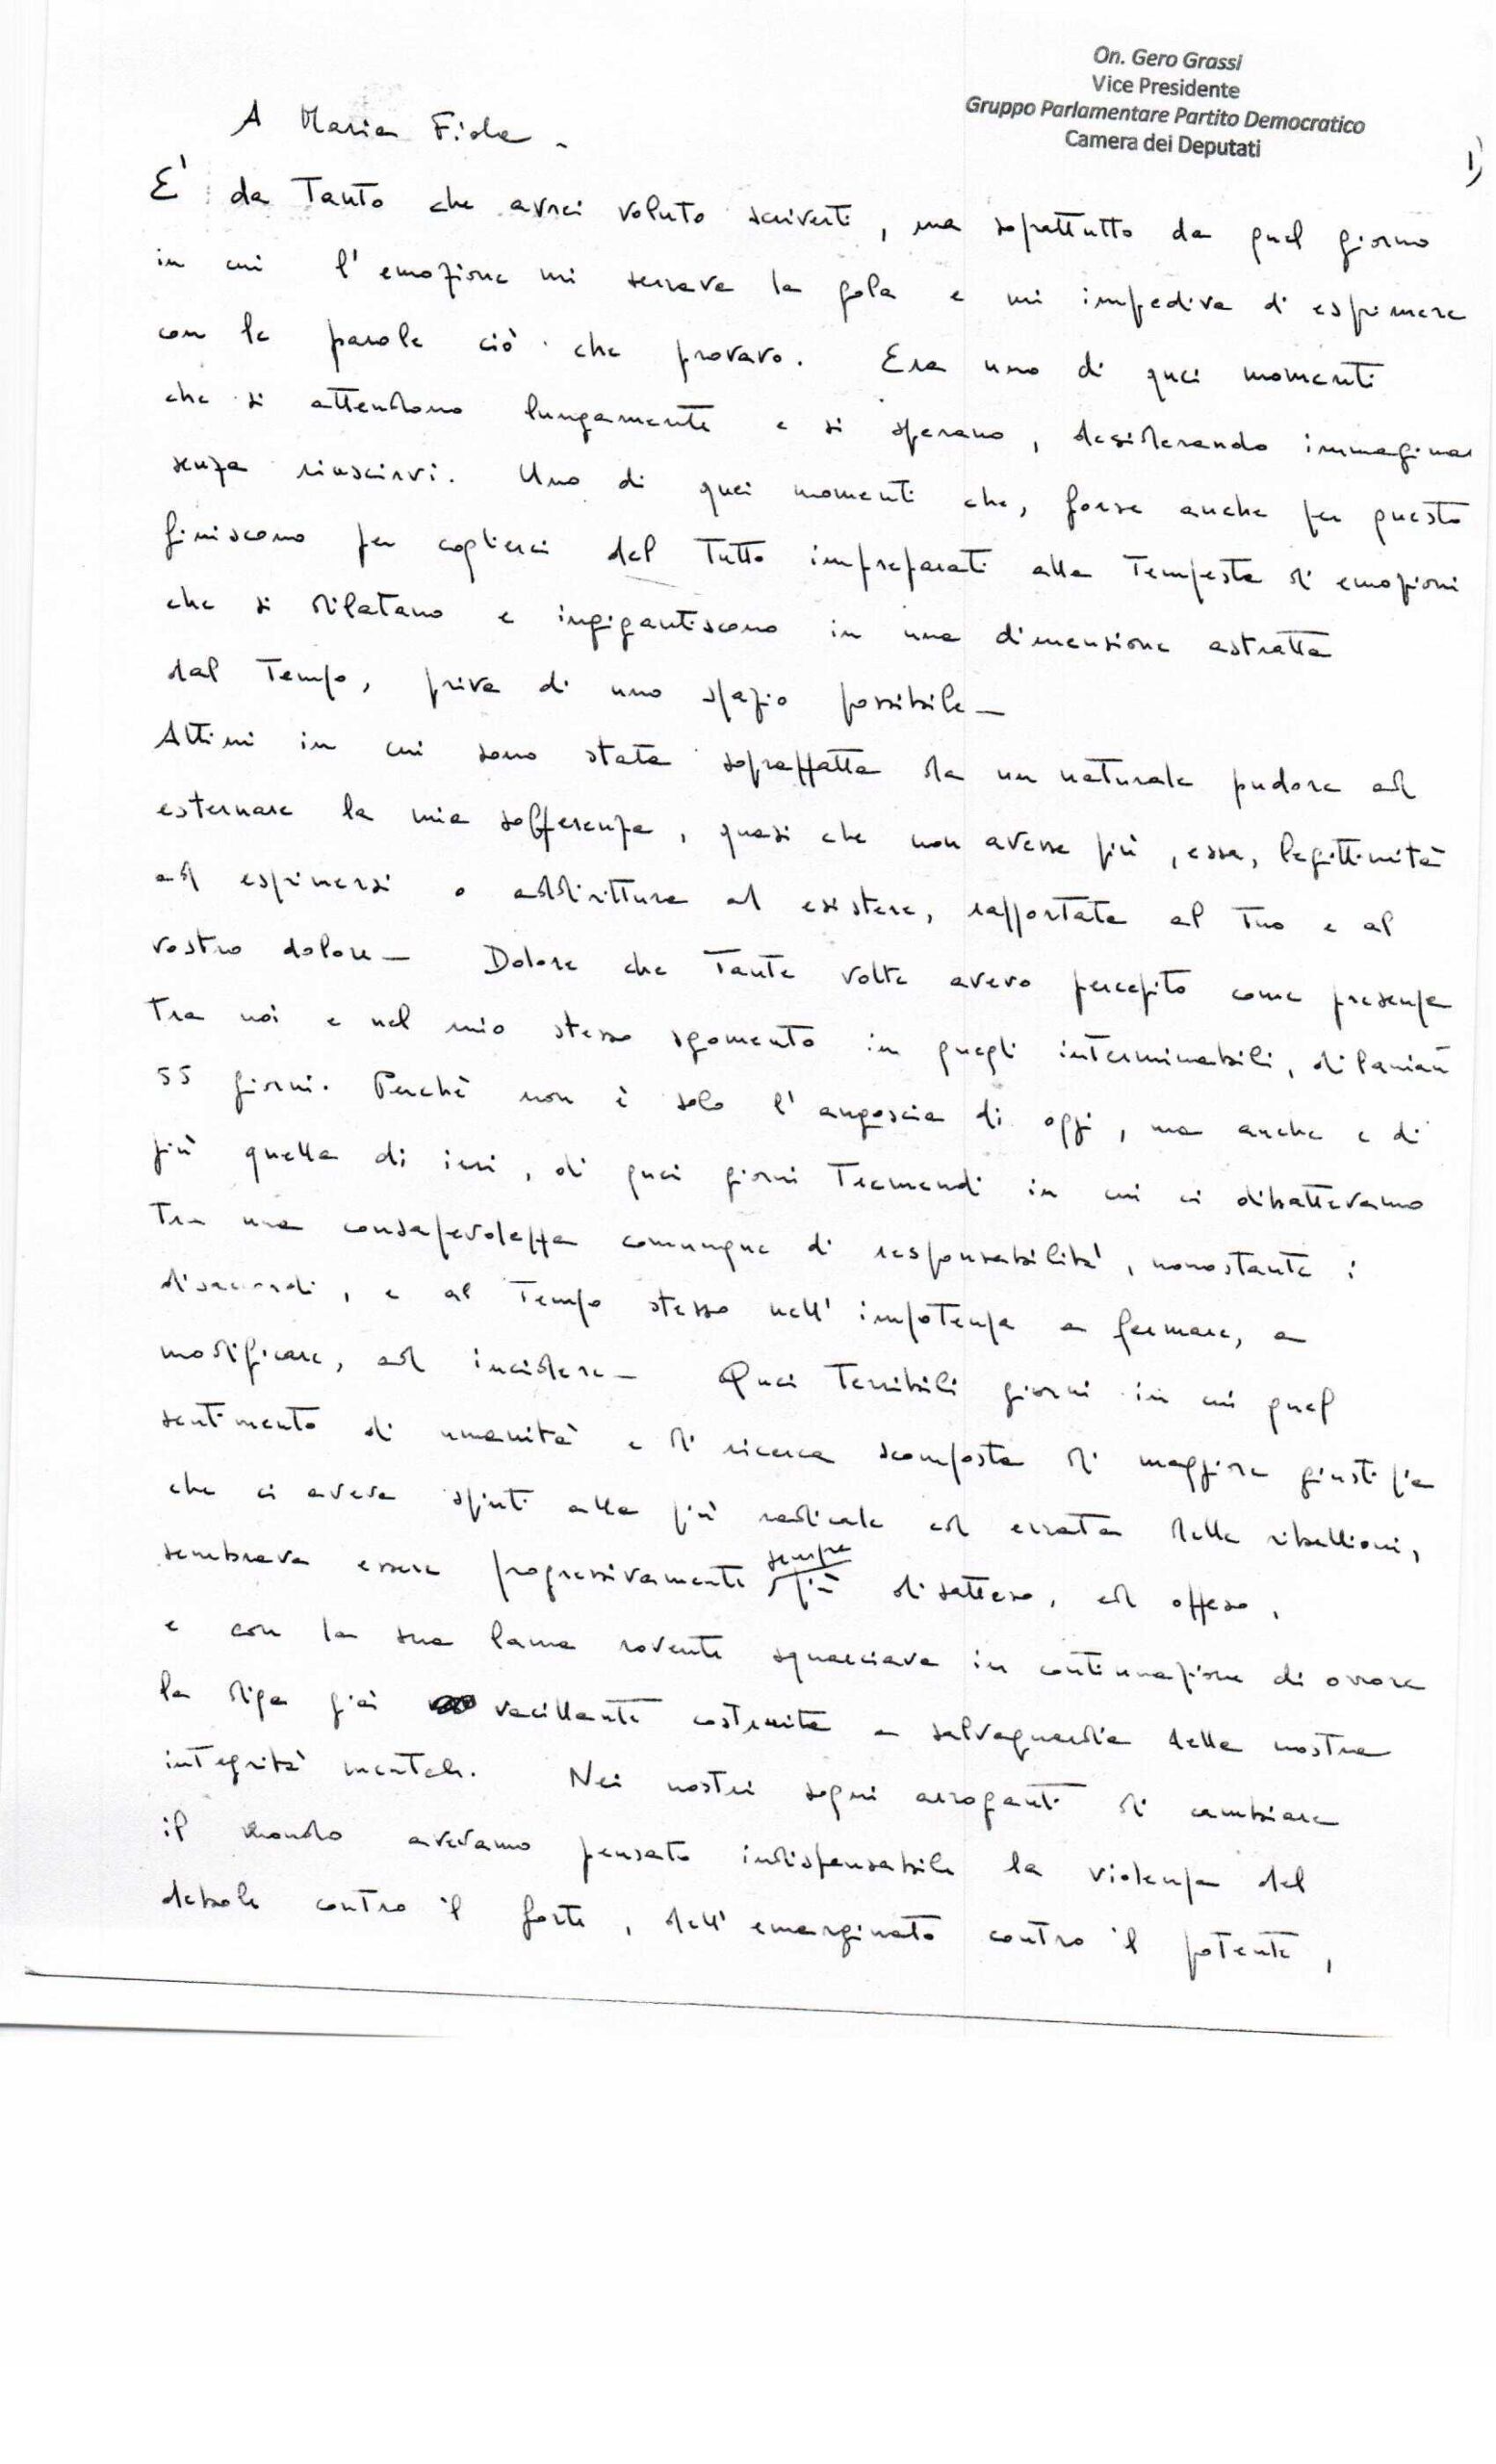 On. Gero Grassi
Vice Presidente
Gruppo Parlamentare Partito Democratico
Camera dei Deputati
1)
A Maria Fida -
E' da tanto che avrei voluto scriverti, ma soprattutto da quel giorno
in cui l'emozione mi serrava la gola e mi impediva di esprimere
con le parole ciò che provavo. Era uno di quei momenti
che si attendono lungamente e si sperano, desiderando immaginar
senza riuscirvi. Uno di quei momenti che, forse anche per questo
finiscono per coglierci del tutto impreparati alla tempesta di emozioni
che si dilatano e ingigantiscono in una dimensione astratta
dal tempo, priva di uno spazio possibile -
Attimi in cui sono stata sopraffatta da un naturale pudore ad
esternare la mia sofferenza, quasi che non avesse più, essa, legittimità
ad esprimersi o addirittura ad esistere, rapportata al tuo e al
vostro dolore - Dolore che tante volte avevo percepito come presenza
tra noi e nel mio stesso sgomento in quegli interminabili, dilanianti
55 giorni. Perchè non è solo l'angoscia di oggi, ma anche e di
più quella di ieri, di quei giorni tremendi in cui ci dibattevamo
tra una consapevolezza comunque di responsabilità, nonostante i
disaccordi, e al tempo stesso nell'impotenza a fermare, a
modificare, ad incidere - Quei terribili giorni in cui quel
sentimento di umanità e di ricerca scomposta di maggiore giustizia
che ci aveva spinti alla più radicale ed errata delle ribellioni,
sembrava essere progressivamente sempre più disatteso, ed offeso,
e con la sua lama rovente squarciava in continuazione di orrore
la diga già vacillante costruita a salvaguardia della nostra
integrità mentale. Nei nostri sogni arroganti di cambiare
il mondo avevamo pensato indispensabile la violenza del
debole contro il forte, dell'emarginato contro il potente,